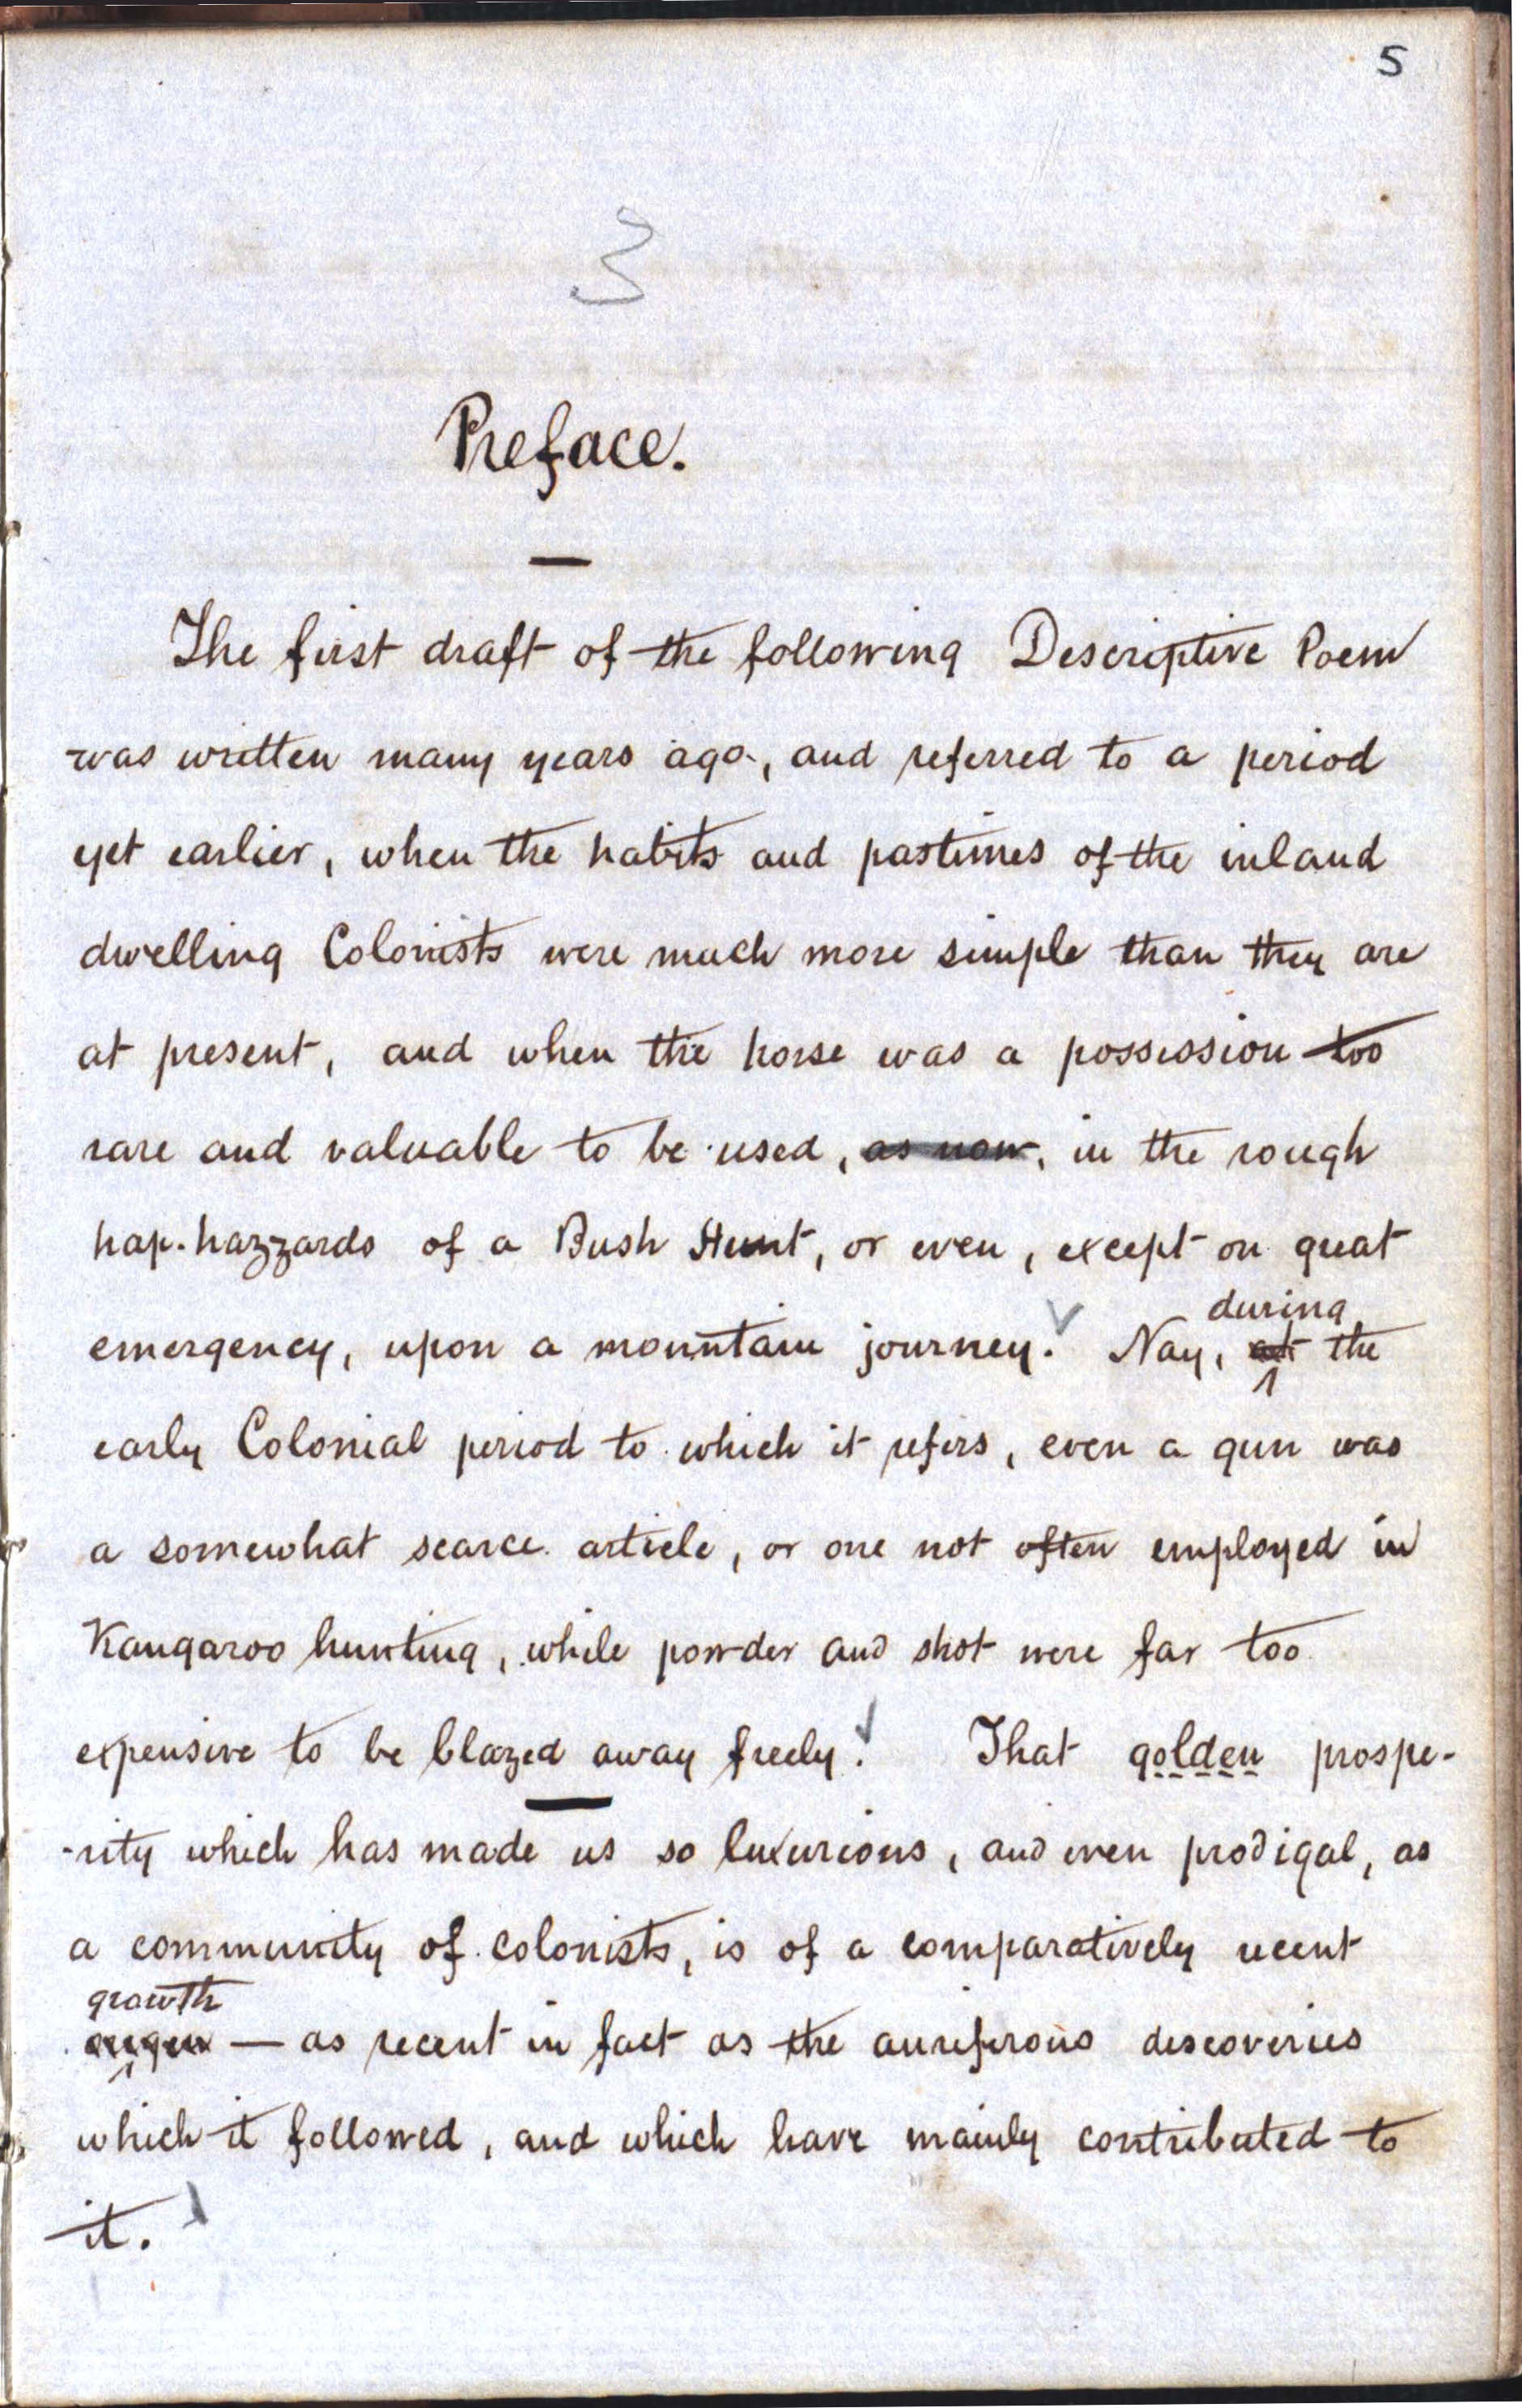 5
3
Preface.
The first draft of the following Descriptive Poem
was written many years ago, and referred to a period
yet earlier, when the habits and pastimes of the inland
dwelling Colonists were much more simple than they are
at present, and when the horse was a possession too
rare and valuable to be used, as now, in the rough
hap-hazzards of a Bush Hunt, or even, except on great
during
emergency, upon a mountain journey. Nay, at the
early Colonial period to which it refers, even a gun was
a somewhat scarce article, or one not often employed in
Kangaroo hunting, while powder and shot were far too
expensive to be blazed away freely! That golden prospe-
-rity which has made us so luxurious, and even prodigal, as
a community of colonists, is of a comparatively recent
growth
origin — as recent in fact as the auriferous discoveries
which it followed, and which have mainly contributed to
it.